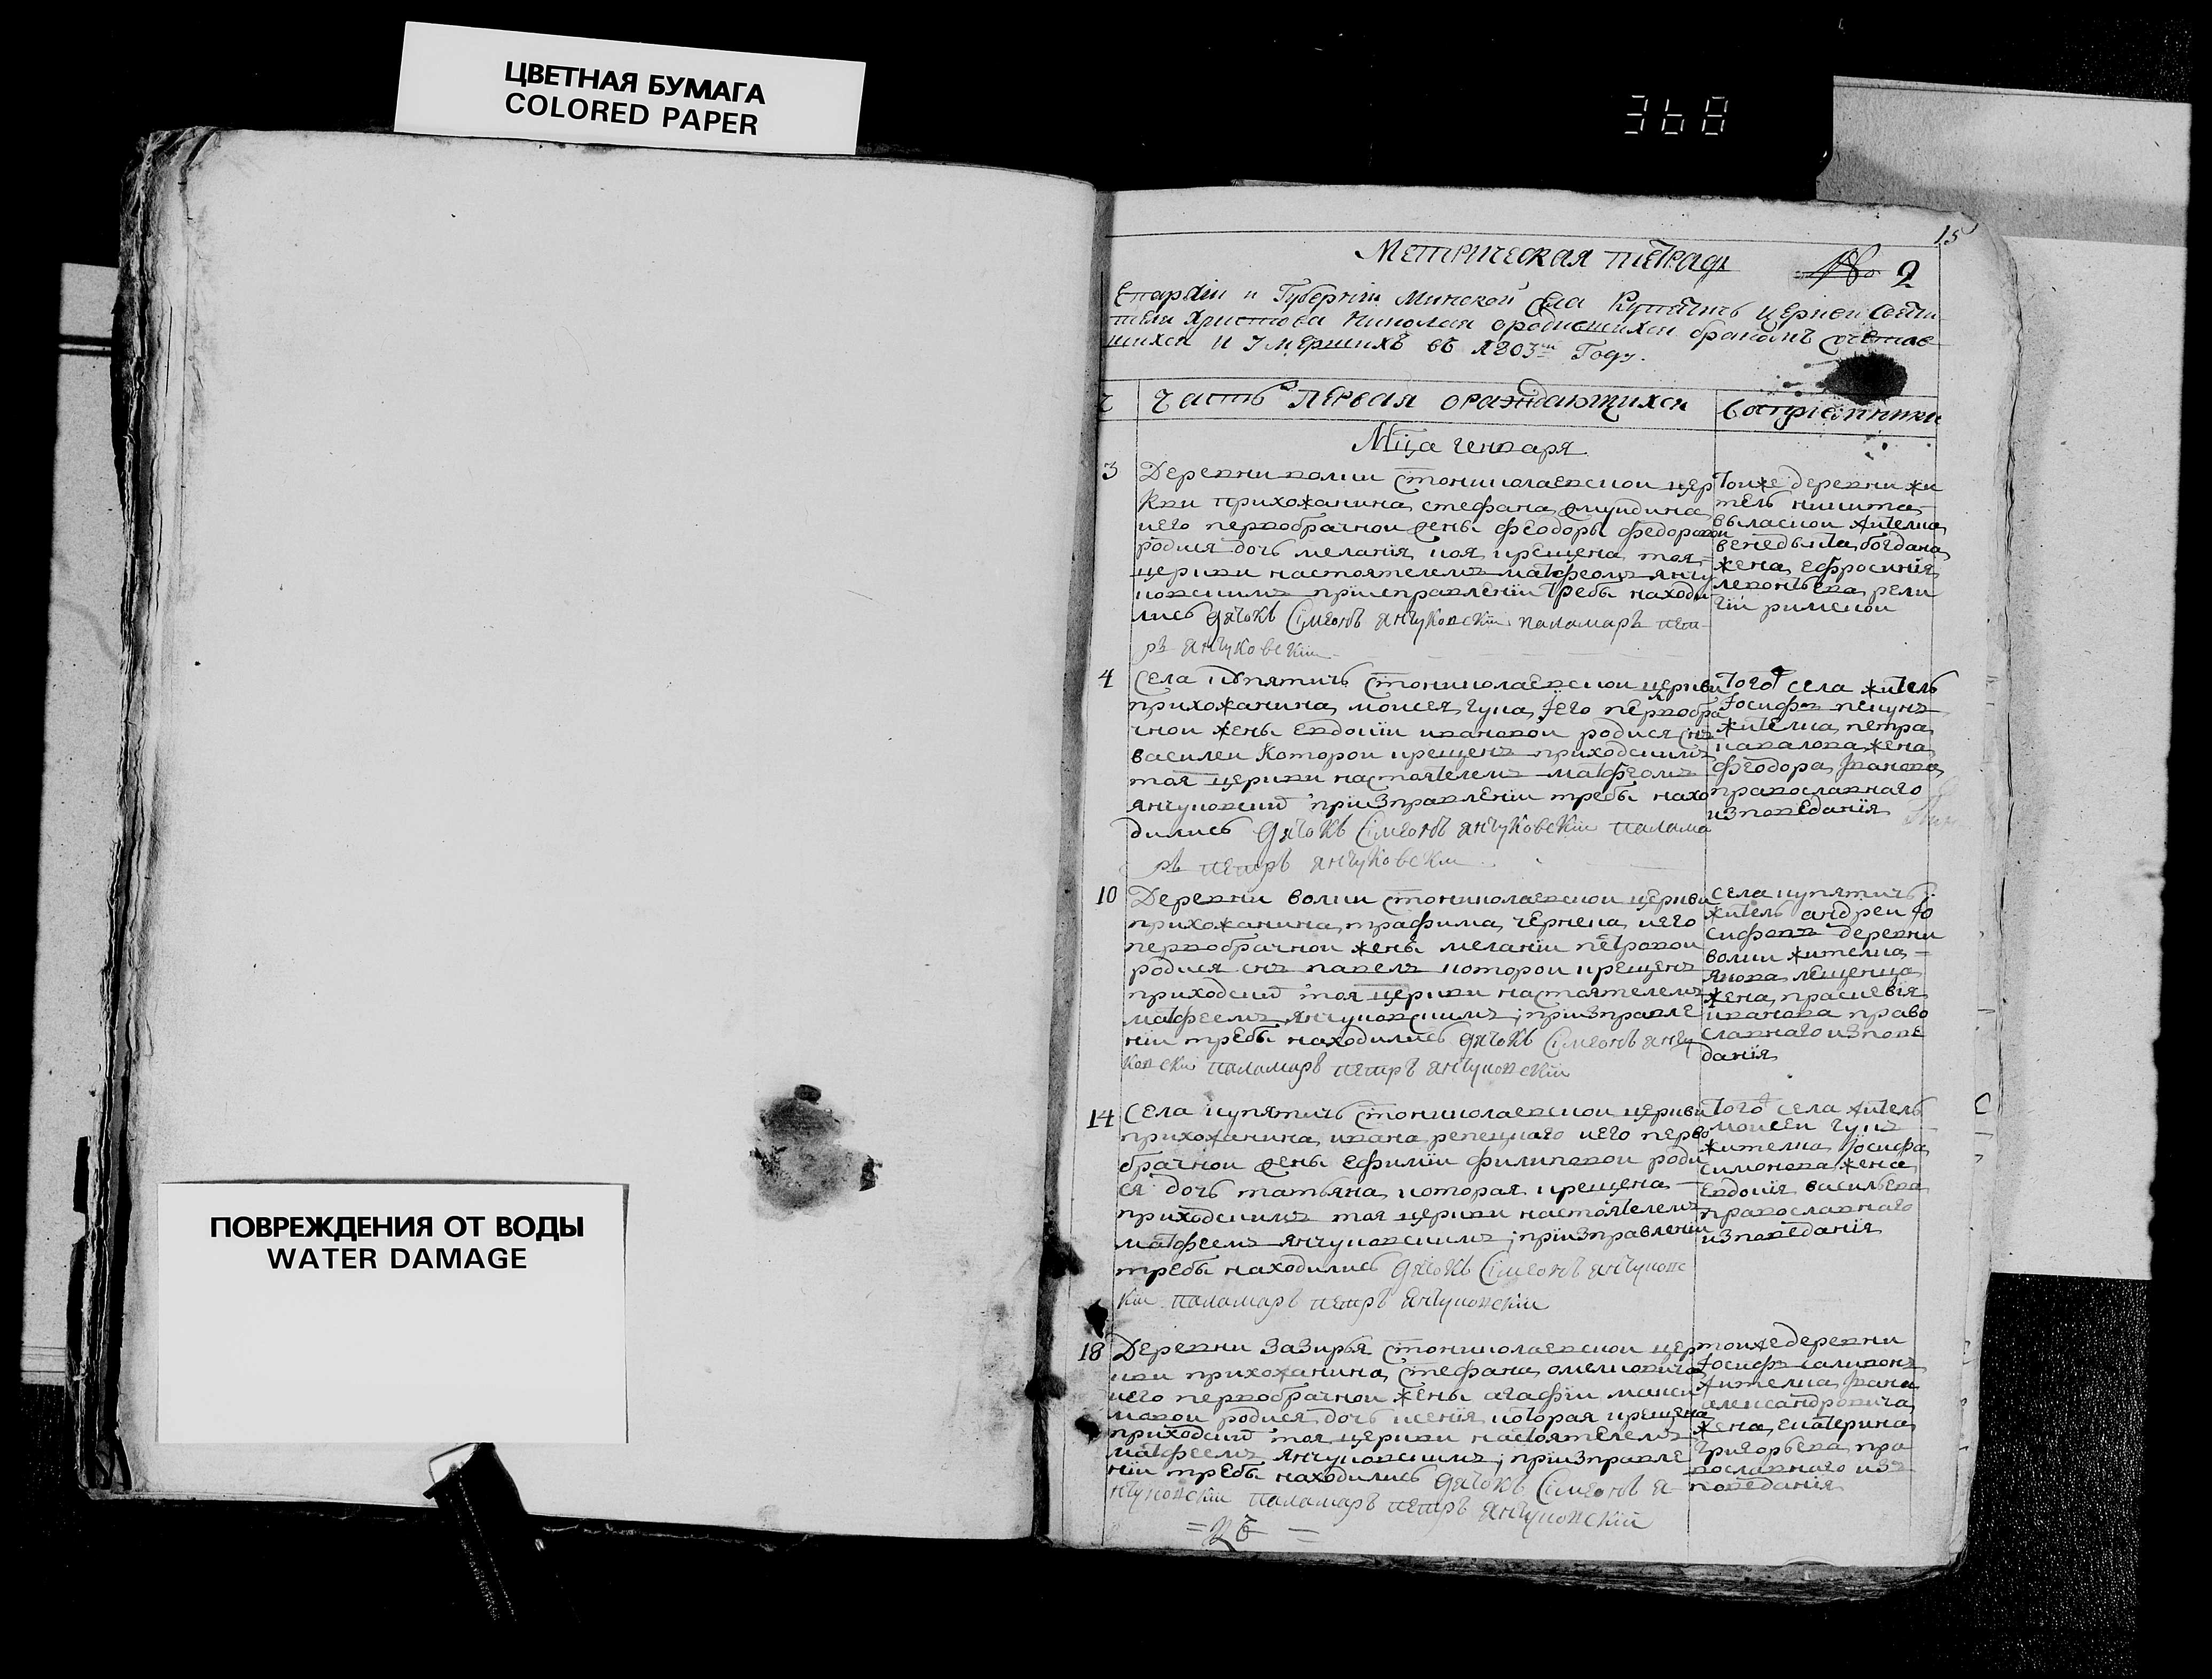 ЦВЕТНАЯ БУМАГА
COLORED PAPER
368
15
Метрическая тетрадь
№ 2
Епархіи и Губерніи Минской Села Купятичь церкви Святи
теля Христова Николая ородившихся бракомъ сочетав
шихся и Умершихъ въ 1803м Году.
Часть первая ораждающихся
Воспріемники
Мца генваря
3
Деревни волки стониколаевской цер
кви прихожанина стефана
иего первобрачной жены феодоры федоровой
родися дочь меланія коя крещена тоя
церкви настоятелемъ матфеомъ янчу
ковскимъ приисправленіи требы находи
лись дячокъ Сімеонъ янчуковскіи паламаръ пет
ръ янчуковскіи
Тоиже деревни жи
тель никита
жителка
венедыкта богдана
жена ефросинія
леконтьева рели
гіи римской
4
Села купятичь стониколаевской церкви
прихожанина моисея гука Iего первобра
чной жены евдокіи ивановой родися снъ
василеи которои крещенъ приходскимъ
тоя церкви настоятелемъ матфеомъ
янчуковским приизправленіи требы нахо
дились дячокъ Сімеонъ янчуковскіи палама
ръ петръ янчуковскіи
Тогож села житель
Iосифъ
жителка петра
жена
феодора Iванова
православнаго
изповеданія
10
Деревни волки стониколаевской церкви
прихожанина трафима чернека иего
первобрачной жены меланіи петровой
родися снъ павелъ которои крещенъ
приходским тоя церкви настоятелемъ
матфеемъ янчуковскимъ приизправле
ніи требы находились дячокъ Сімеонъ янчу
ковскіи паламаръ петръ янчуковскіи
Села купятичь
житель андреи Iо
сифовъ деревни
волки жителка
янова лещенка
жена праскевія
иванова право
славнаго изпове
данія
14
Села купятичь стониколаевской церкви
прихожанина ивана репецкаго иего перво
брачной жены ефиміи филиповой роди
ся дочь татьяна которая крещена
приходскимъ тоя церкви настоятелемъ
матфеемъ янчуковскимъ приизправленіи
требы находились дячокъ Сімеонъ янчуковс
кіи паламаръ петръ янчуковскіи
Тогож села житель
моисеи гукъ
жителка Iосифа
симонова жена
евдокія васильева
православнаго
изповеданія
18
Деревни зазирья стониколаевской цер
кви прихожанина стефана омелковича
иего первобрачной жены агафіи макси
мовой родися дочь ксенія которая крещена
приходским тоя церкви настоятелемъ
матфеемъ янчуковскимъ приизправле
ніи требы находились дячокъ Сімеонъ я
нчуковскіи паламаръ петръ янчуковскіи
тоижедеревни
Iосифъ саливонъ
жителка Iвана
александровича
жена екатерина
григорьева пра
вославнаго из
поведанія
ПОВРЕЖДЕНИЯ ОТ ВОДЫ
WATER DAMAGE